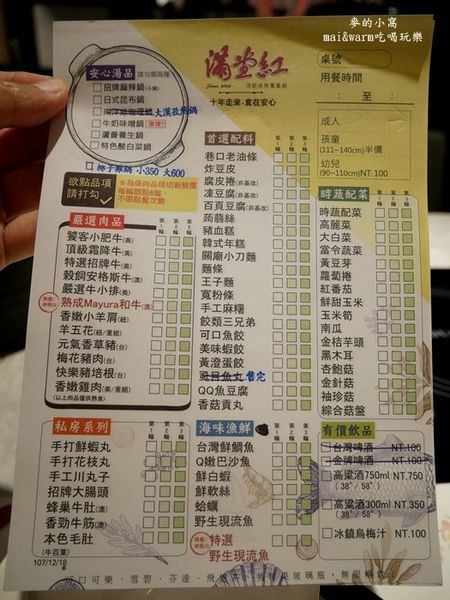 麥的小窩
mai&warm吃喝玩樂
安心湯品 請勾選兩種
招牌麻辣鍋(小辣)
日式昆布鍋
大漠孜然鍋
牛奶味噌鍋
蘆薈養生鍋
特色酸白菜鍋
椰子雞鍋 小350 大600
滿堂紅
Since 2004
頂級麻辣鴛鴦鍋
十年走來·食在安心
桌號
用餐時間
: 至 :
成人
孩童
(111~140cm)半價
幼兒
(90~110cm)NT.100
欲點品項
請打勾✓
☆為保肉品現切新鮮度
每輪限點6盤,
不限點餐次數
嚴選肉品
第1輪 第2輪 第3輪
饕客小肥牛(美)
頂級霜降牛(美)
特選招牌牛(美)
穀飼安格斯牛(澳)
嚴選牛小排(美)
熟成Mayura和牛(澳)
香嫩小羊肩(紐)
羊五花(紐/重組)
元氣香草豬(台)
梅花豬肉(台)
快樂豬培根(台)
香嫩雞肉(美/重組)
(以上肉品僅供熟食)
首選配料
第1輪 第2輪 第3輪
巷口老油條
炸豆皮
腐皮捲(非基改)
凍豆腐(非基改)
百頁豆腐(非基改)
蒟蒻絲
豬血糕
韓式年糕
關廟小刀麵
麵條
王子麵
寬粉條
手工麻糬
餃類三兄弟
可口魚餃
美味蝦餃
黃澄蛋餃
售完
QQ魚豆腐
香菇貢丸
時蔬配菜
第1輪 第2輪 第3輪
時蔬配菜
高麗菜
大白菜
當令蔬菜
黃豆芽
蘿蔔捲
紅番茄
鮮甜玉米
玉米筍
南瓜
金桔芋頭
黑木耳
杏鮑菇
金針菇
袖珍菇
綜合菇盤
私房系列
第1輪 第2輪 第3輪
手打鮮蝦丸
手打花枝丸
手工川丸子
招牌大腸頭
蜂巢牛肚(澳)
香勁牛筋(澳)
本色毛肚
(牛百葉)
107/12/18
海味漁鮮
第1輪 第2輪 第3輪
台灣鮮鯛魚
Q嫩巴沙魚
鮮白蝦
鮮軟絲
蛤蠣
野生現流魚
特選
野生現流魚
有價飲品
台灣啤酒 NT.100
金牌啤酒 NT.100
高粱酒750ml NT.750
(38°/58°)
高粱酒300ml NT.350
(38°/58°)
冰鎮烏梅汁 NT.100